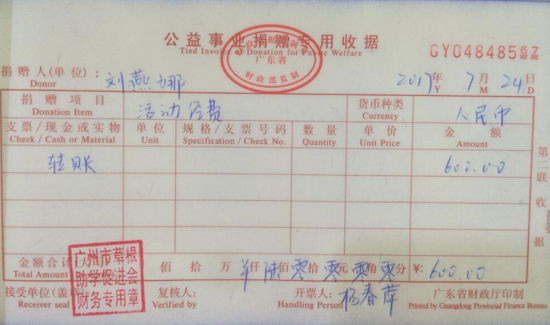 公益事业捐赠专用收据
Tied Invoice of Donation for Public Welfare
广东省
财政部监制
GY04848562
捐赠人(单位): 刘燕娜 2017年 7月 24日
Donor Y M D
捐赠项目 活动经费 货币种类 人民币
Donation Item Currency
支票/现金或实物 单位 规格/支票号码 数量 单价 金额
Check / Cash or Material Unit Specification / Check No. Quantity Unit Price Amount
转账 600.00
第二联 收据
金额合计 佰 拾 万 仟 陆佰 零拾 零元 零角 零分 ¥: 600.00
Total Amount
广州市草根
助学促进会
财务专用章
接受单位(盖 复核人: 开票人: 杨春萍 广东省财政厅印制
Receiver seal Verified by Handling Person Printed by Guangdong Provincial Finance Bureau